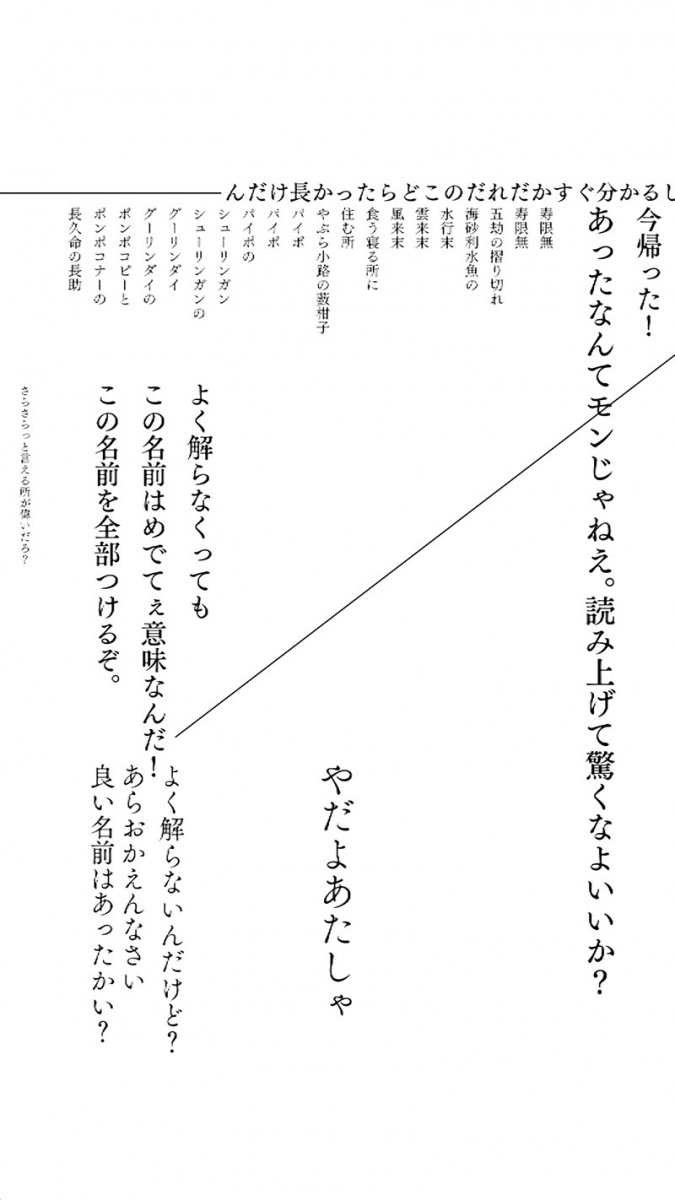 んだけ長かったらどこのだれだかすぐ分かるし
今帰った！
あったなんてモンじゃねえ。読み上げて驚くなよいいか？
寿限無
寿限無
五劫の摺り切れ
海砂利水魚の
水行末
雲来末
風来末
食う寝る所に
住む所
やぶら小路の藪柑子
パイポ
パイポ
パイポの
シューリンガン
シューリンガンの
グーリンダイ
グーリンダイの
ポンポコピーと
ポンポコナーの
長久命の長助
よく解らなくっても
この名前はめでてぇ意味なんだ！
この名前を全部つけるぞ。
さらさらっと言える所が偉いだろ？
やだよあたしゃ
よく解らないんだけど？
あらおかえんなさい
良い名前はあったかい？